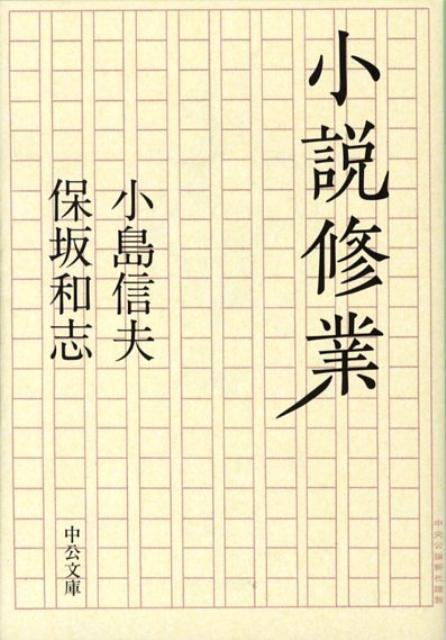 小説修業
小島信夫
保坂和志
中公文庫
中央公論新社謹製